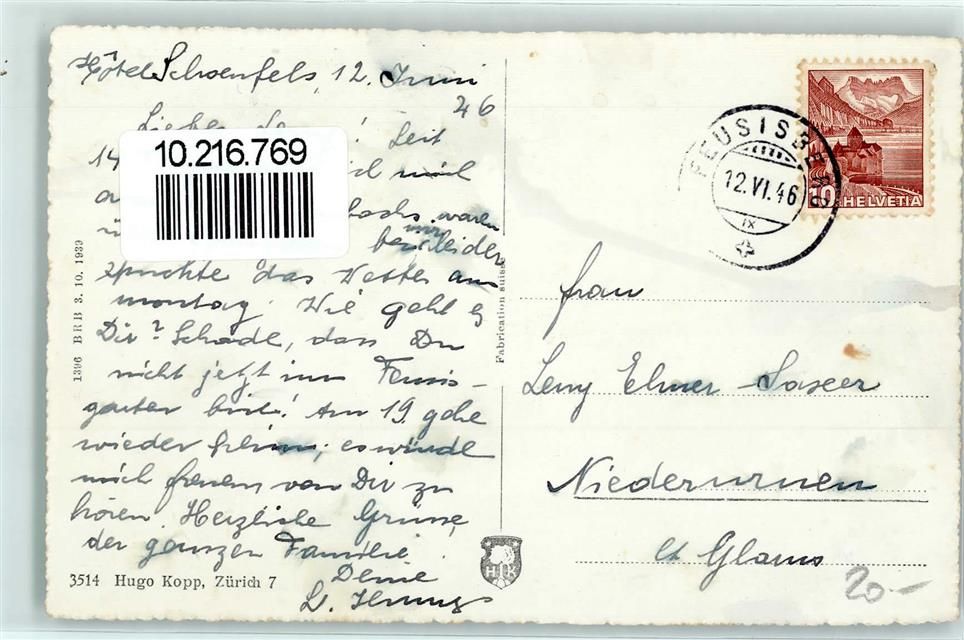 Hôtel Schoenfels, 12. Juni
46
Seit
14
10.216.769
waren
leider
das Wetter am
montag. Wie geht es
Dir? Schade, dass Du
nicht jetzt im
bist! Am 19. gehe
wieder heim; es würde
mich freuen von Dir zu
hören. Herzliche Grüsse,
der ganzen Familie.
Deine
3514 Hugo Kopp, Zürich 7
1396 BRB 3. 10. 1939
Fabrication suisse
HK
FEUSISBERG
12.VI.46
IX
10 HELVETIA
Frau
Leny Elmer-Saxer
Niederurnen
Ct Glarus
20.-